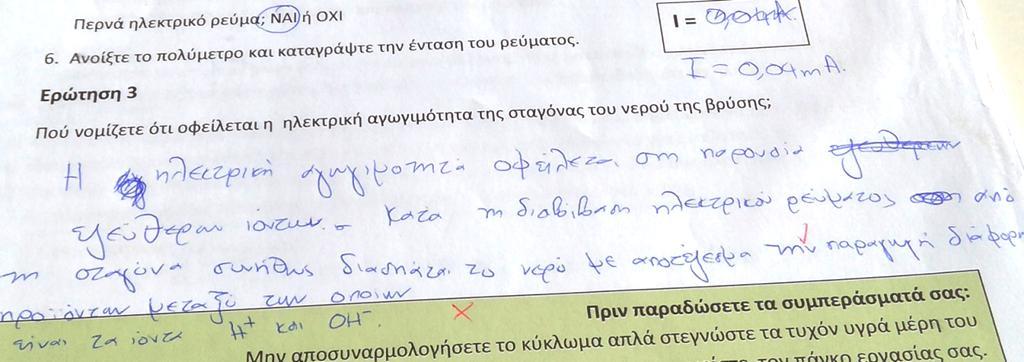 Περνά ηλεκτρικό ρεύμα; ΝΑΙ ή ΟΧΙ
I =
6. Ανοίξτε το πολύμετρο και καταγράψτε την ένταση του ρεύματος.
I = 0,04mA.
Ερώτηση 3
Πού νομίζετε ότι οφείλεται η ηλεκτρική αγωγιμότητα της σταγόνας του νερού της βρύσης;
Η ηλεκτρική αγωγιμότητα οφείλεται στη παρουσία
ελεύθερων ιόντων. Κατά τη διαβίβαση ηλεκτρικού ρεύματος από
τη σταγόνα συνήθως διασπάται το νερό με αποτέλεσμα την παραγωγή διάφορων
προϊόντων μεταξύ των οποίων
είναι τα ιόντα H⁺ και OH⁻.
Πριν παραδώσετε τα συμπεράσματά σας:
Μην αποσυναρμολογήσετε το κύκλωμα απλά στεγνώστε τα τυχόν υγρά μέρη του
τον πάγκο εργασίας σας.